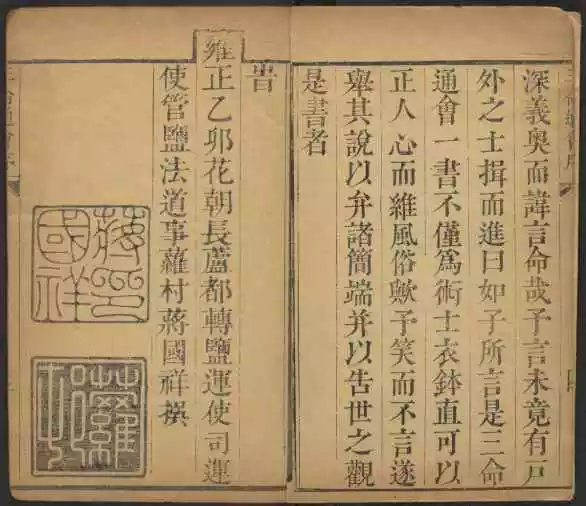 深義奧而諱言命哉予言未竟有戸
外之士揖而進曰如子所言是三命
通會一書不僅為術士衣鉢直可以
正人心而維風俗歟予笑而不言遂
舉其說以弁諸簡端并以告世之觀
是書者
旹
雍正乙卯花朝長蘆都轉鹽運使司運
使管鹽法道事蘿村蔣國祥撰
蔣印
國祥
蘿